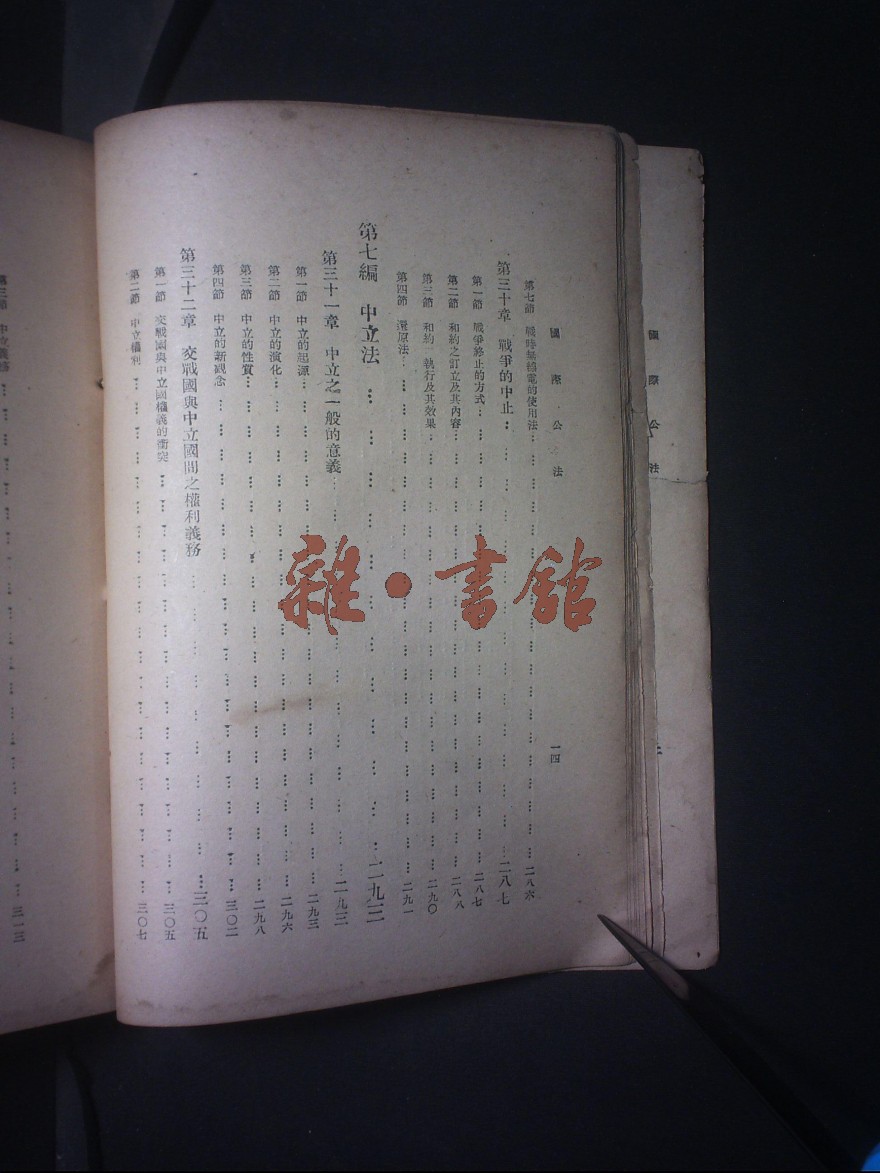 國際公法
一四
第七節 戰時無線電的使用法 二八六
第三十章 戰爭的中止 二八七
第一節 戰爭終止的方式 二八七
第二節 和約之訂立及其內容 二八八
第三節 和約 執行及其效果 二九〇
第四節 還原法 二九一
第七編 中立法 二九三
第三十一章 中立之一般的意義 二九三
第一節 中立的起源 二九三
第二節 中立的演化 二九六
第三節 中立的性質 二九八
第四節 中立的新觀念 三〇二
第三十二章 交戰國與中立國間之權利義務 三〇五
第一節 交戰國與中立國權義的衝突 三〇五
第二節 中立權利 三〇七
第三節 中立義務 三一三
國際公法
雜·書館